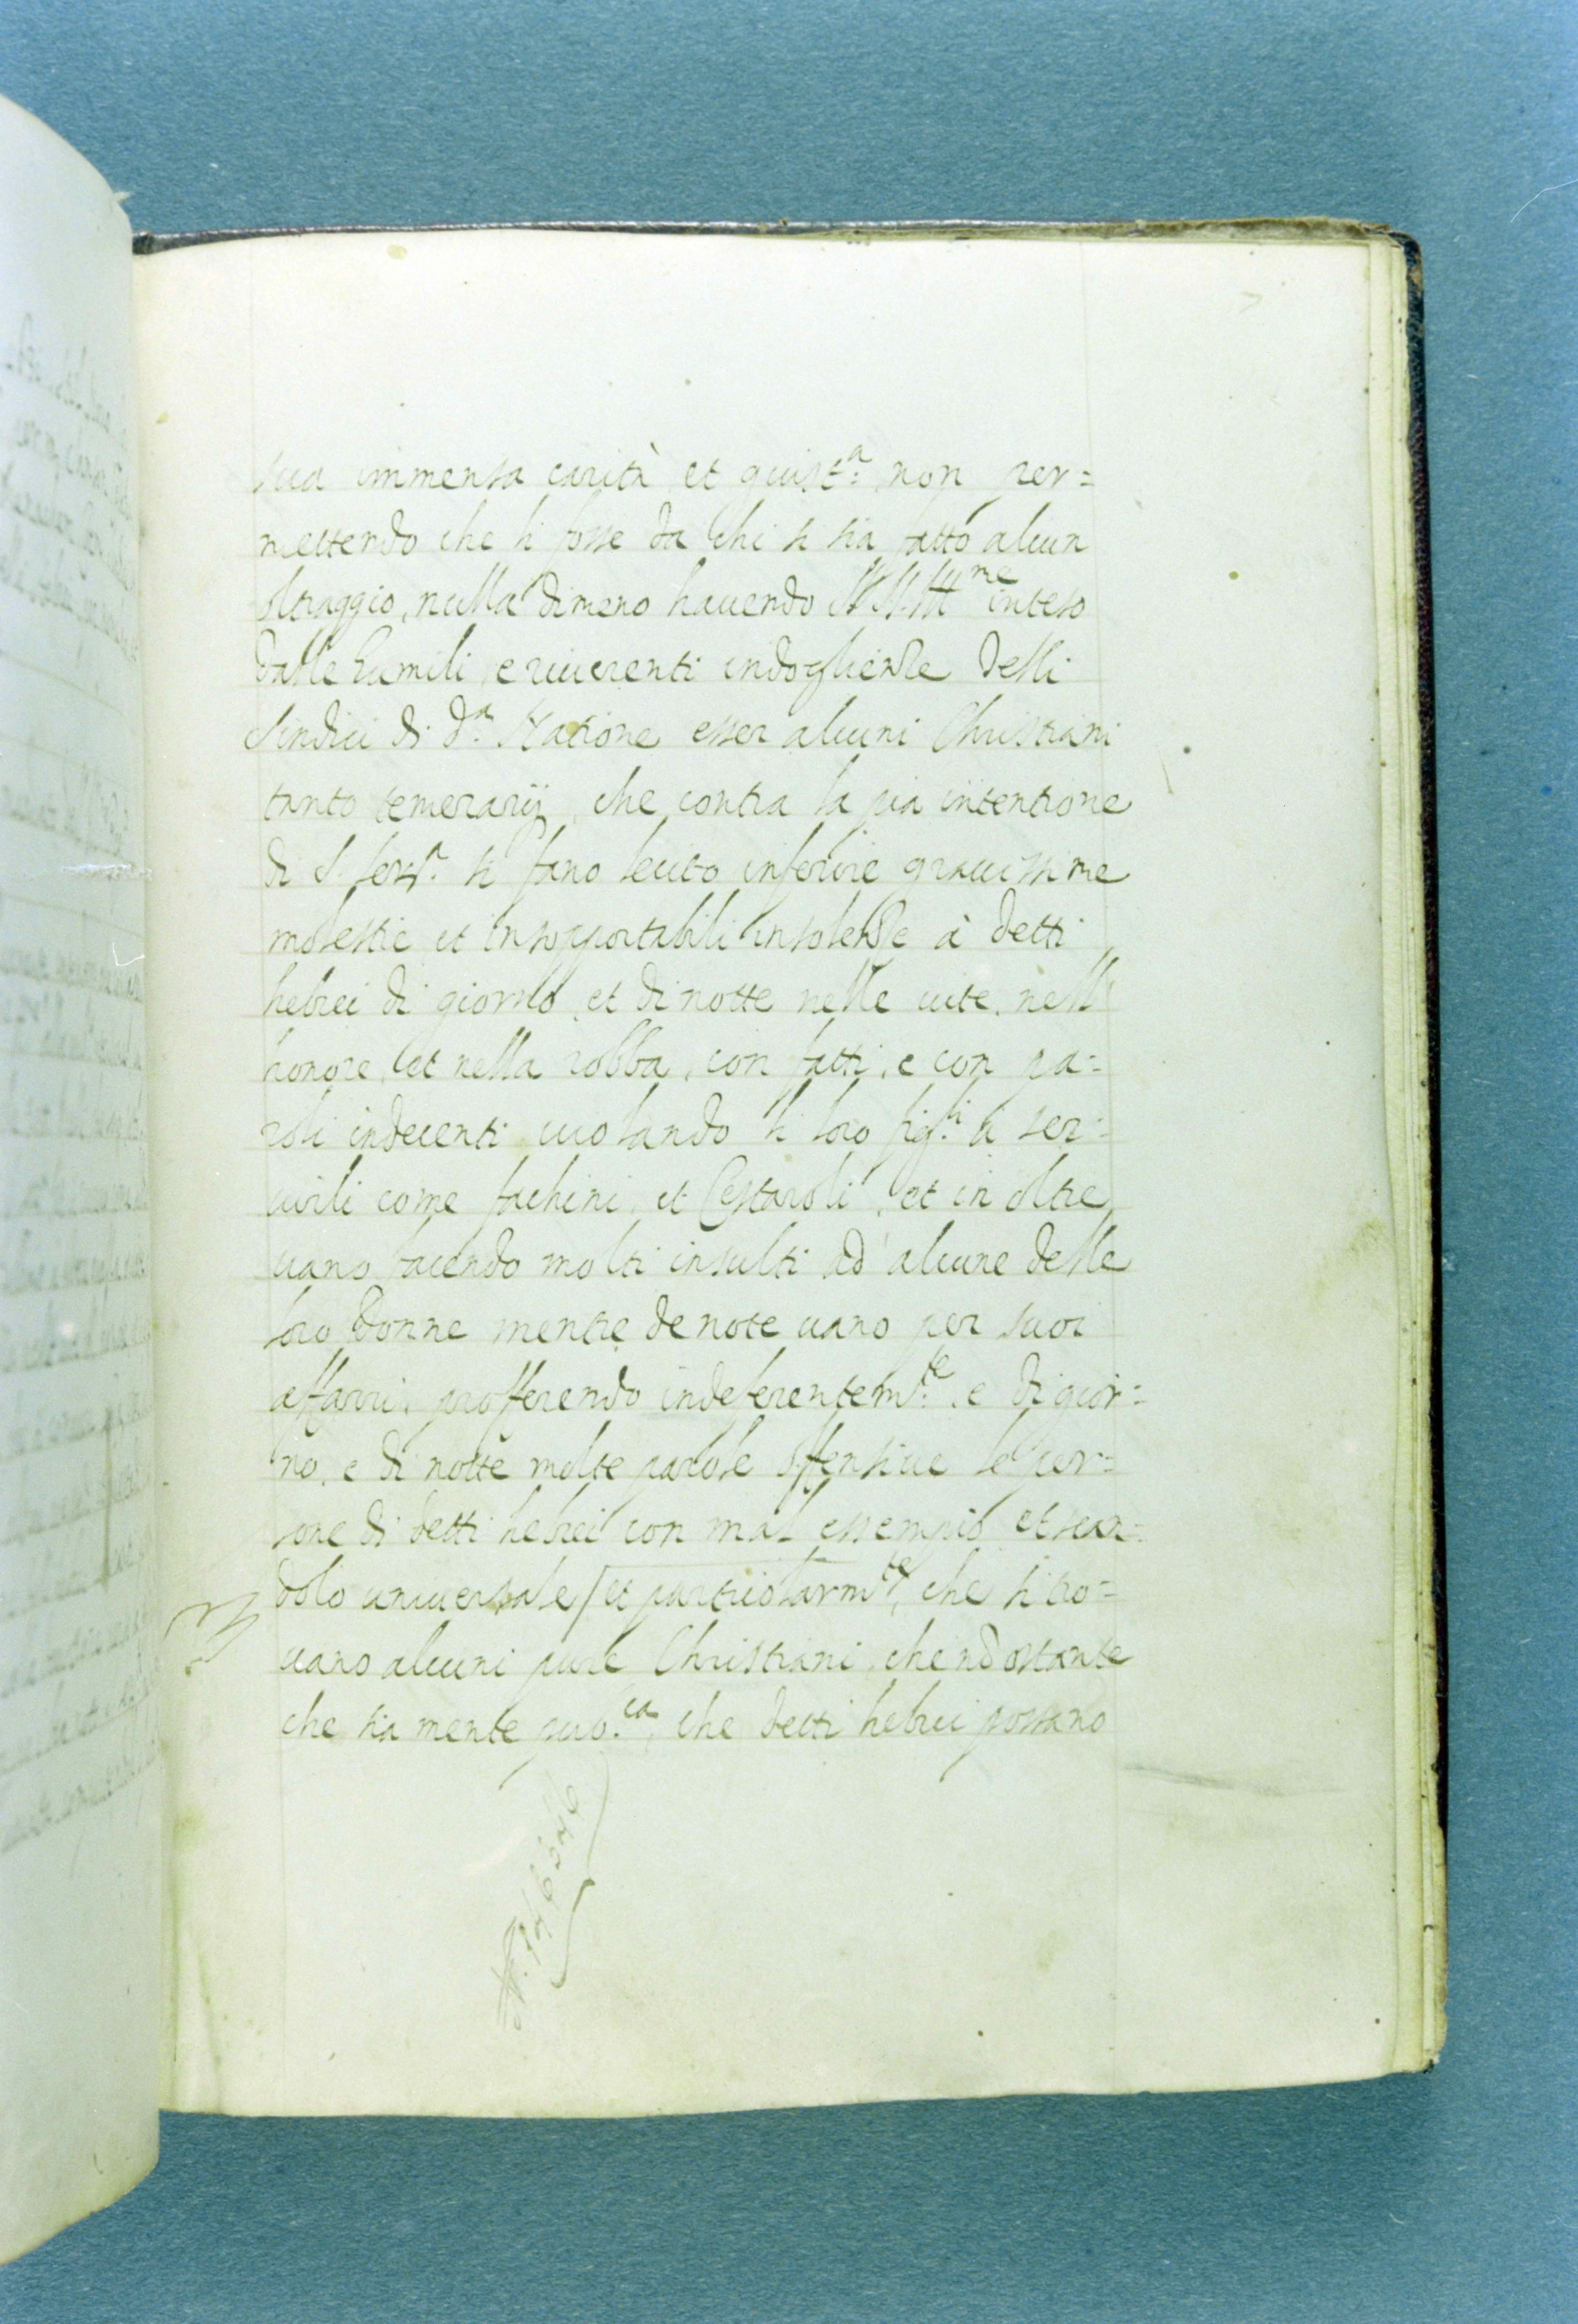 sua immensa carità et giust.a non per=
mettendo che li fosse da chi si sia fatto alcun
oltraggio, nulla dimeno hauendo SS. SS. Ill.me inteso
dalle humili, e riuerenti indoglienze delli
Sindici di d.a Natione esser alcuni Christiani
tanto temerarij, che contra la pia intentione
di S. Ser.a si fano lecito inferire grauissime
molestie et insopportabili insolenze à detti
hebrei di giorno, et di notte nelle uite, nell
honore, et nella robba, con fatti, e con pa=
role indecenti uiolando li loro fig.li li ser=
uili come fachini, et Cestaroli, et in oltre
uano facendo molti insulti ad alcune delle
loro Donne mentre de note uano per suoi
affarri, profferendo indeferentem.te, e di gior=
no, e di notte molte parole offensiue le per=
sone di detti hebrei con mal essempio, et scan=
dolo uniuersale/et particolarm.te, che si tro=
uano alcuni pure Christiani, che nõ ostante
che sia mente pub.ca, che detti hebrei possano